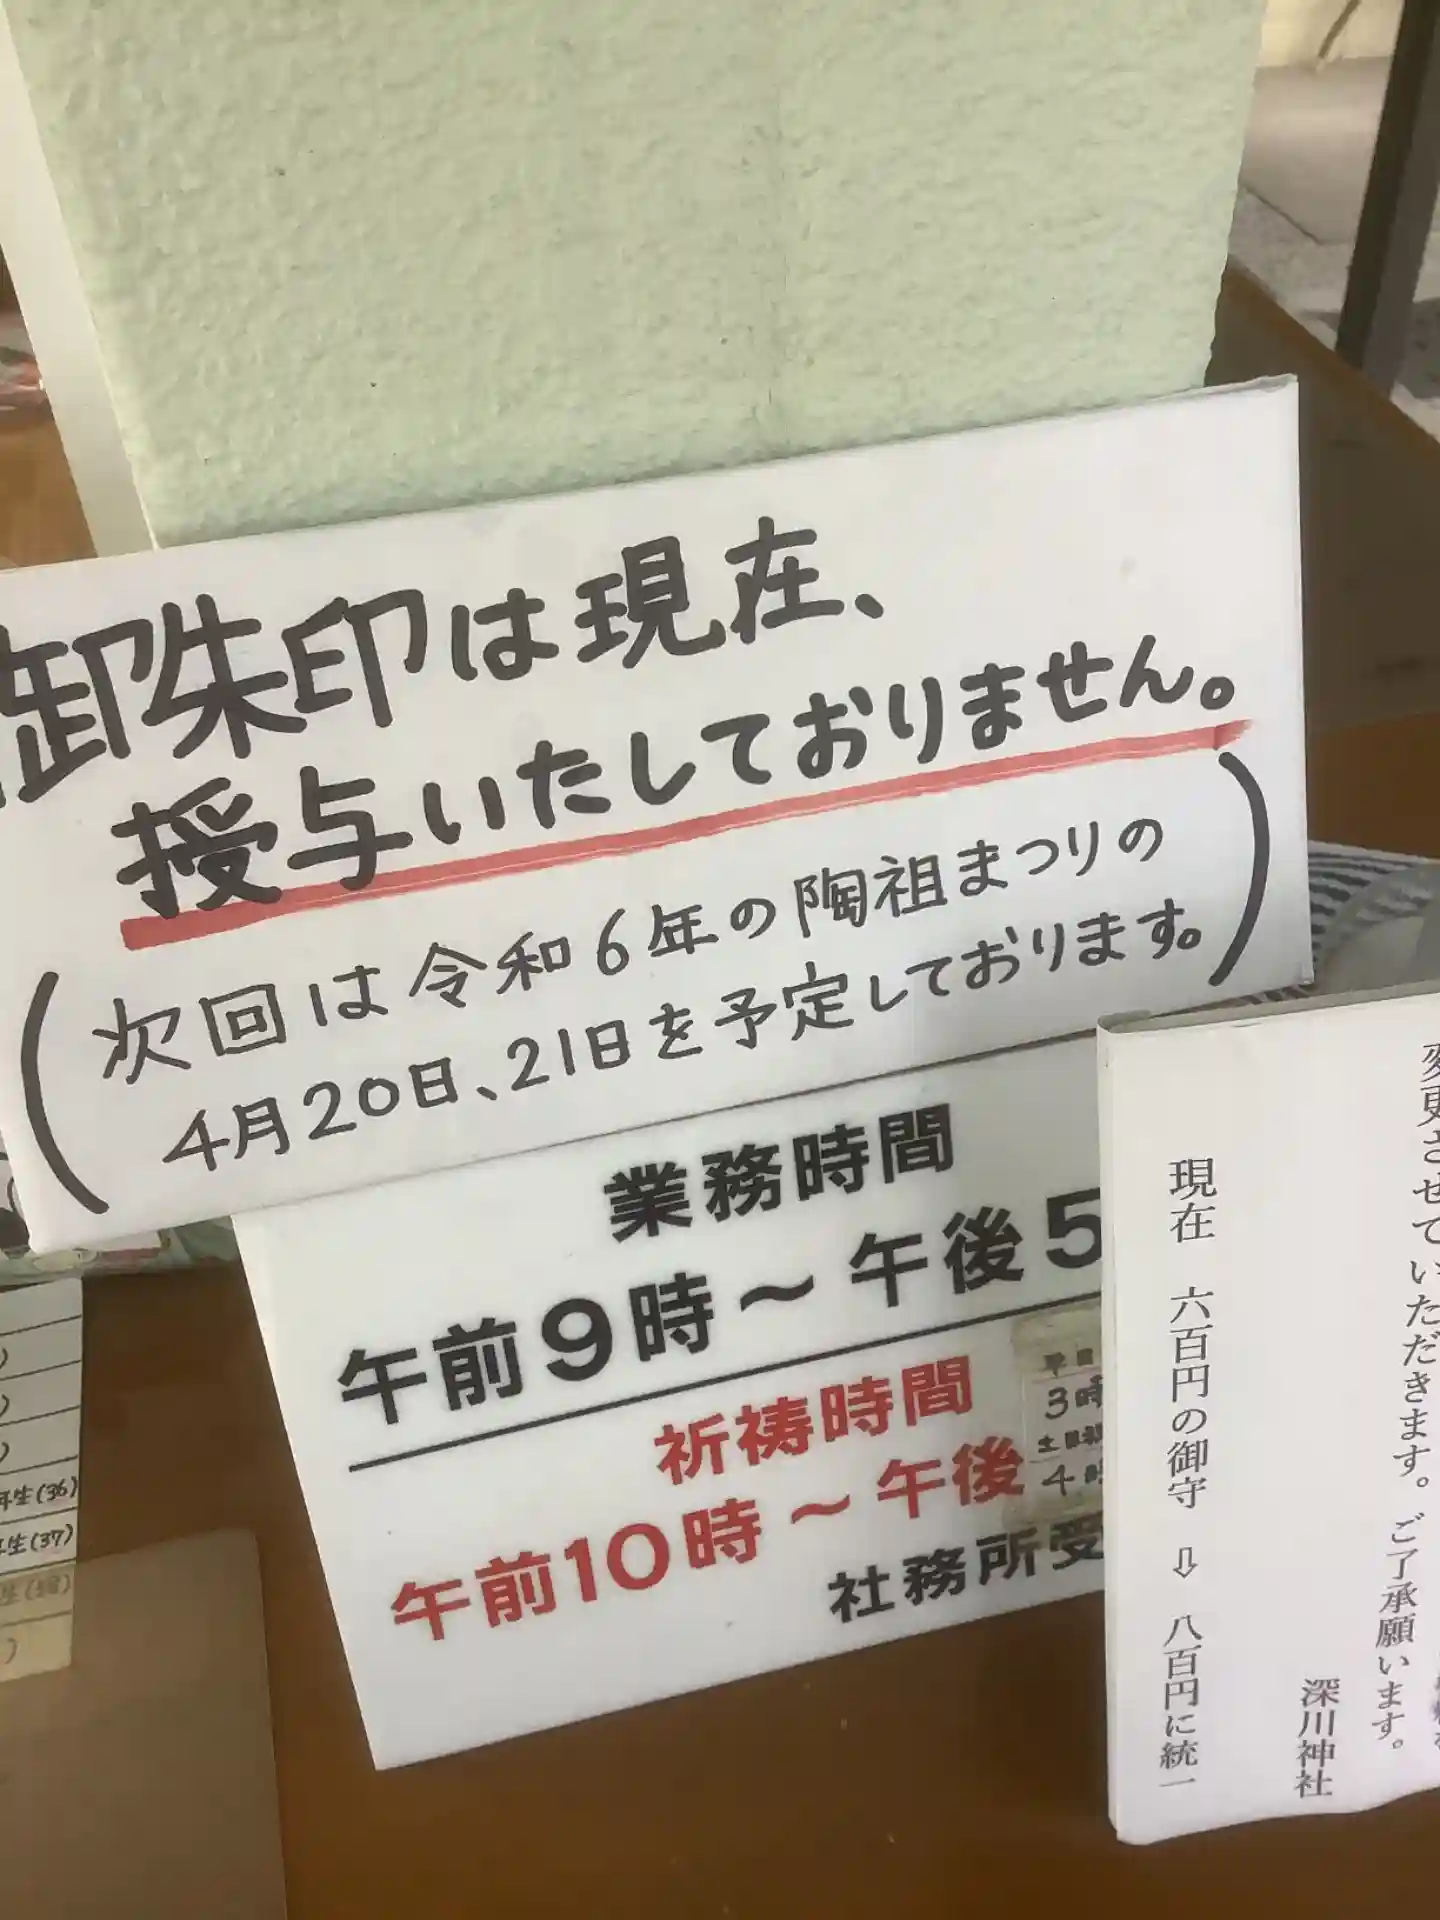 御朱印は現在、
授与いたしておりません。
(次回は令和6年の陶祖まつりの
4月20日、21日を予定しております。)
業務時間
午前9時～午後5
祈祷時間
午前10時～午後
平日
3時
土日祝
4時
社務所受
変更させていただきます。ご了承願います。
深川神社
現在 六百円の御守 ⇩ 八百円に統一
年生(36)
年生(37)